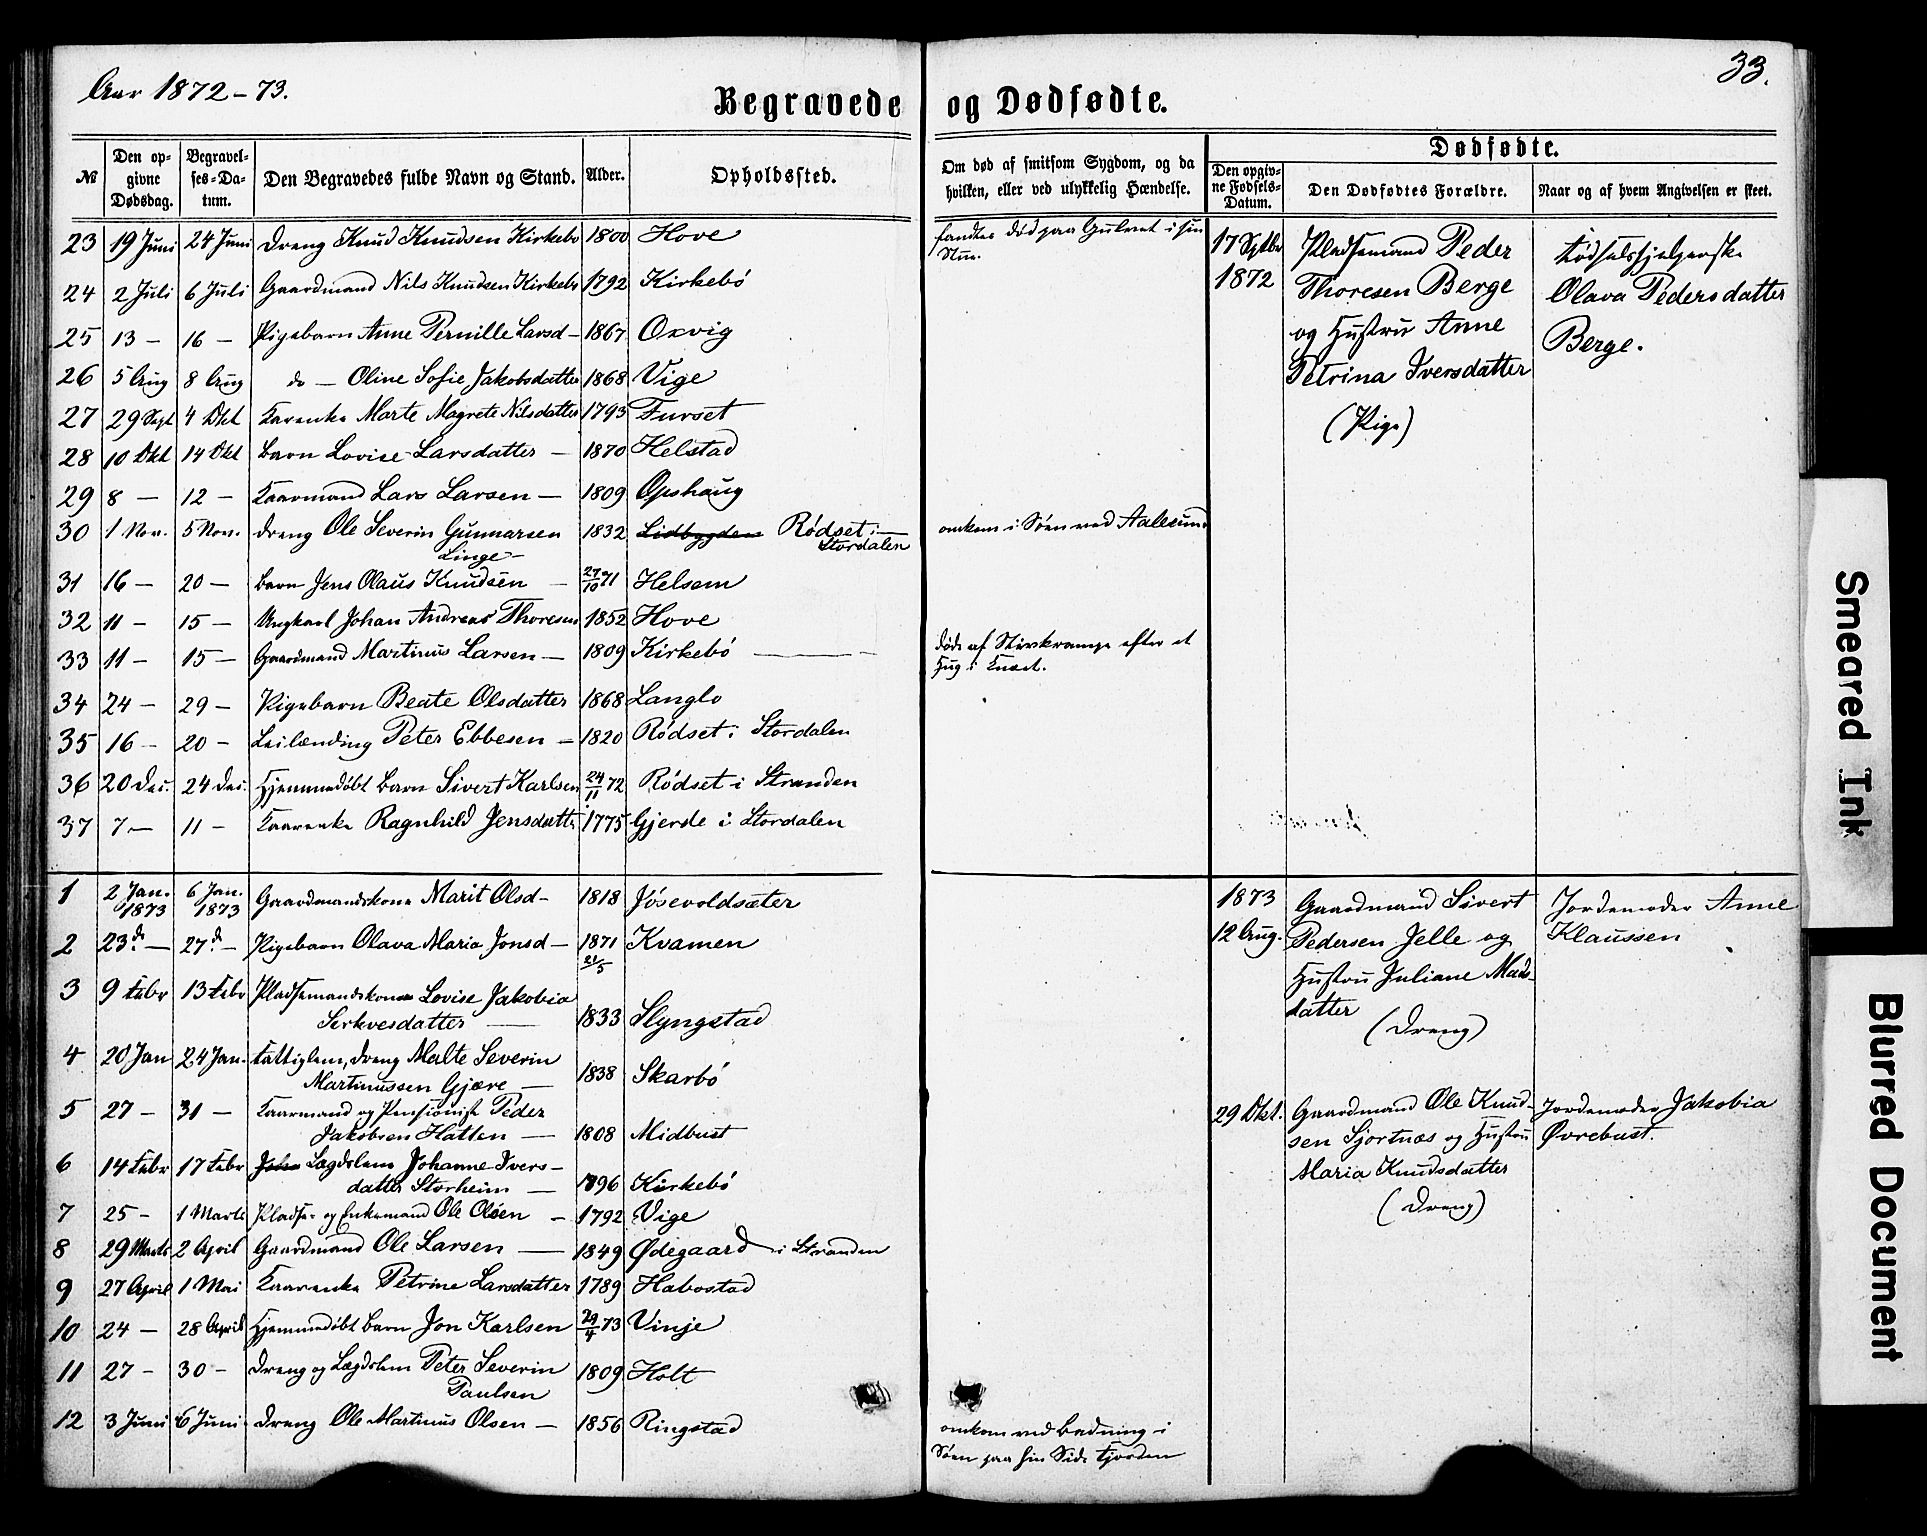 Aar 1872-73.
33.
Begravede og Dødfødte.
№
Den op-
givne
Dødsdag.
Begravel-
ses-Da-
tum.
Den Begravedes fulde Navn og Stand.
Alder.
Opholdssted.
Om død af smitsom Sygdom, og da
hvilken, eller ved ulykkelig Hændelse.
Dødfødte.
Den opgiv-
ne Fødsels-
Datum.
Den Dødfødtes Forældre.
Naar og af hvem Angivelsen er skeet.
23 19 Juni 24 Juni Dreng Knud Knudsen Kirkebø 1800 Hove fandtes død paa Gulvet i sin
Stue.
24 2 Juli 6 Juli Gaardmand Nils Knudsen Kirkebø 1792 Kirkebö
25 13 — 16 — Pigebarn Anne Pernille Larsd — 1867 Oxvig
26 5 Aug 8 Aug do — Oline Sofie Jakobsdatter 1868 Vige
27 29 Sept 4 Okt Kaarenke Marte Magrete Nilsdatter 1793 Furset
28 10 Okt 14 Okt Barn Lovise Larsdatter — 1870 Helstad
29 8 — 12 — Kaarmand Lars Larsen — 1809 Opshaug
30 1 Nov. 5 Nov. Dreng Ole Severin Gunnarsen 1832 Lidbygden Rödset i omkom i Søen ved Aalesund
Linge — Stordalen
31 16 — 20 — Barn Jens Olaus Knudsen — 27/10 71 Helsem
32 11 — 15 — Ungkarl Johan Andreas Thoresen 1852 Hove
33 11 — 15 — Gaardmand Martinus Larsen — 1809 Kirkebö — døde af Stivkrampe efter et
Hug i Knæet.
34 24 — 29 — Pigebarn Beate Olsdatter 1868 Langlo
35 16 — 20 — Leilænding Peter Ebbesen — 1820 Rödset i Stordalen
36 20 Dec. 24 Dec. Hjemmedøbt Barn Sivert Karlsen 24/11 72 Rödset i Stranden
37 7 — 11 — Kaarenke Ragnhild Jensdatter 1775 Gjerde i Stordalen
17 Septbr
1872
Pladsemand Peder
Thoresen Berge
og Hustru Anne
Petrina Iversdatter
(Pige)
Fødselshjelperske
Olava Pedersdatter
Berge.
1 2 Jan. 1873 6 Jan. 1873 Gaardmandskone Marit Olsd — 1818 Jösevoldsæter
2 23d — 27d — Pigebarn Olava Maria Jonsd — 1871 21/5 Kvamen
3 9 Febr 13 Febr Pladsemandskone Lovise Jakobia
Serkvesdatter — 1833 Slyngstad
4 20 Jan 24 Jan. Fattiglem, Dreng Malte Severin
Martinussen Gjære — 1838 Skarbö
5 27 — 31 — Kaarmand og Pensionist Peder
Jakobsen Hatten — 1808 Midbust
6 14 Febr 17 Febr Joha Lægdslem Johanne Ivers-
datter Storheim — 1796 Kirkebö
7 25 — 1 Marts Pladse- og Enkemand Ole Olsen — 1792 Vige
8 29 Marts 2 April Gaardmand Ole Larsen — 1849 Ødegaard i Stranden
9 27 April 1 Mai Kaarenke Petrine Larsdatter 1789 Habostad
10 24 — 28 April Hjemmedøbt Barn Jon Karlsen 20/4 73 Vinje
11 27 — 30 — Dreng og Lægdslem Peter Severin 1809 Holt
Paulsen
12 3 Juni 6 Juni Dreng Ole Martinus Olsen — 1856 Ringstad omkom ved Badning i
Søen paa hin Side Fjorden
1873
12 Aug.
Gaardmand Sivert
Pedersen Jelle og
Hustru Juliane Mads-
datter
(Dreng)
Jordemoder Anne
Klaussen
29 Okt.
Gaardmand Ole Knud-
sen Sjortnæs og Hustru
Maria Knudsdatter
(Dreng)
Jordemoder Jakobia
Øvrebust.
Smeared Ink
Blurred Document